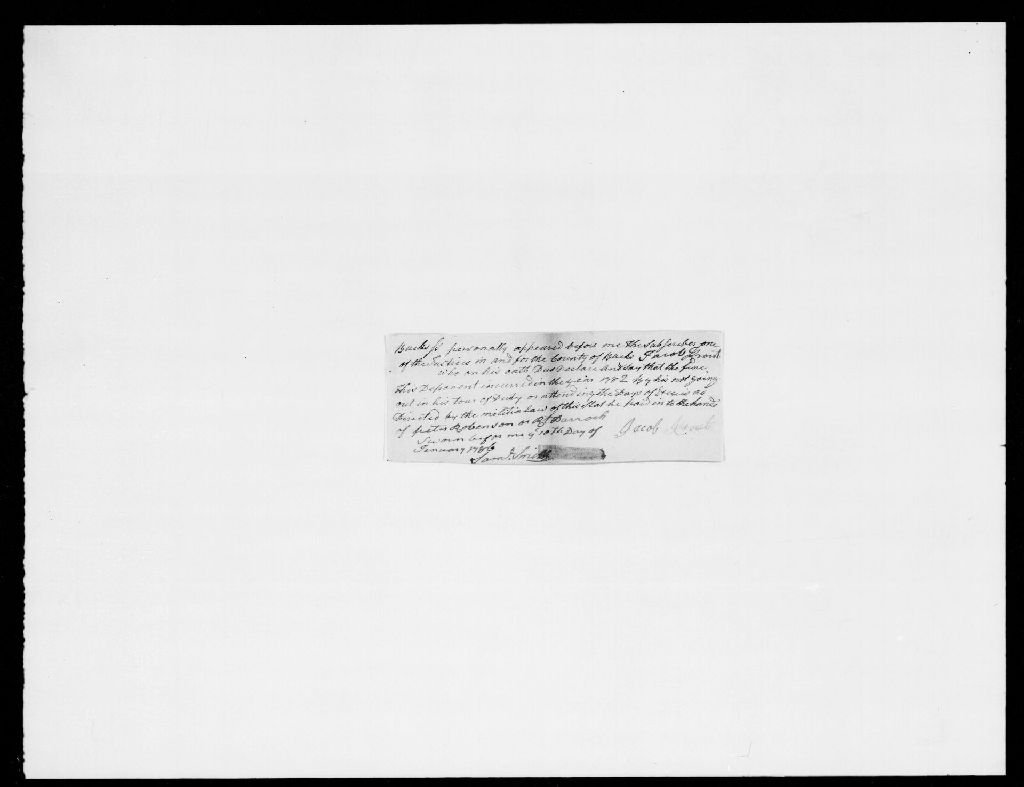 Bucks ss personally appeared before me the Subscriber one
of the Justices in and for the County of Bucks Jacob
who on his oath Due Declare And say that the fine
This Deponent incurred in the year 1782 by his not going
out in his tour of Duty or attending the Days of as
Directed by the militia Law of this Stat he paid in to the hands
of Robenson or Darroch
Sworn before me ye 10th Day of
Jacob
January 1786
Saml. Smith